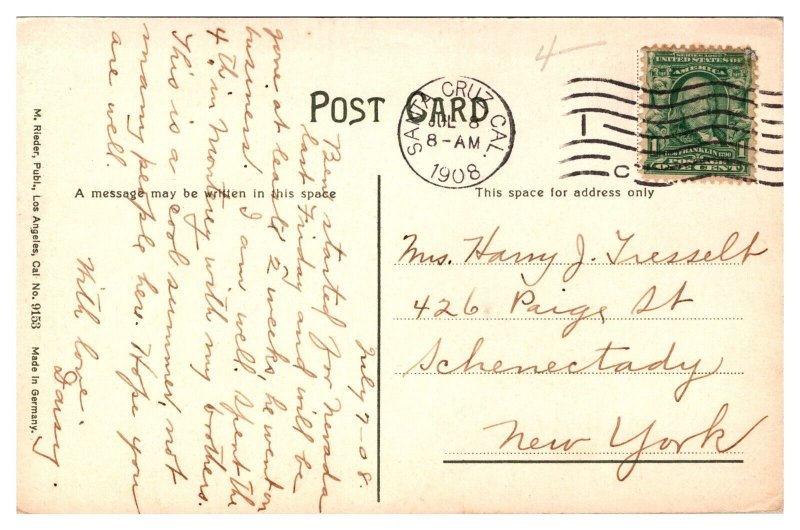 4
POST CARD
SANTA CRUZ, CAL.
JUL 8
8-AM
1908
1
C
SERIES 1902
UNITED STATES OF
AMERICA
FRANKLIN
ONE CENT
A message may be written in this space
This space for address only
July 7-08.
Ben started for Nevada
last Friday and will be
gone at least 2 weeks, he went on
business. I am well. Spent the
4th in Monterey with my brothers.
This is a cool summer, not
many people here. Hope you
are well.
With love
Daisy.
Mrs. Harry J. Tresselt
426 Paige St
Schenectady
New York
M. Rieder, Publ., Los Angeles, Cal No. 9153 Made in Germany.